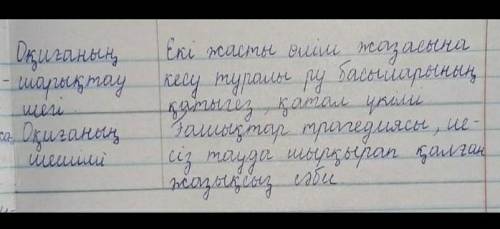 Оқиғаның Екі жасты өлім жазасына
- шарықтау кесу туралы ру басыларының
шегі қатыгез, қатал үкімі
Оқиғаның Ғашықтар трагедиясы, ие-
шешімі сіз тауда шырқырап қалған
жазықсыз сәби.